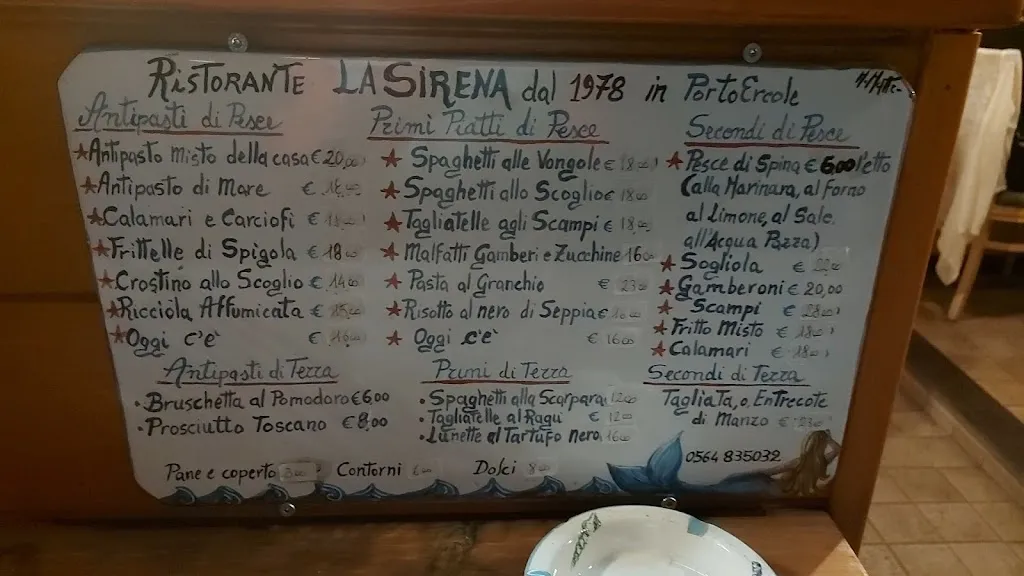 RISTORANTE LA SIRENA dal 1978 in PortoErcole
Antipasti di Pesce
Antipasto Misto della casa € 20,00
Antipasto di Mare €
Calamari e Carciofi €
Frittelle di Spigola € 18,00
Crostino allo Scoglio € 14,00
Ricciola Affumicata € 15,00
Oggi c'è € 16,00
Antipasti di Terra
Bruschetta al Pomodoro €6,00
Prosciutto Toscano €8,00
Primi Piatti di Pesce
Spaghetti alle Vongole € 18,00
Spaghetti allo Scoglio € 18,00
Tagliatelle agli Scampi € 18,00
Malfatti Gamberi e Zucchine 16,00
Pasta al Granchio € 23,00
Risotto al nero di Seppia € 16,00
Oggi c'è € 16,00
Primi di Terra
Spaghetti alla Scarpara 12,00
Tagliatelle al Ragù € 12,00
Lunette al Tartufo Nero 16,00
Secondi di Pesce
Pesce di Spina € 6,00 l'etto
(alla Marinara, al forno
al Limone, al Sale.
all'Acqua Pazza)
Sogliola €
Gamberoni € 20,00
Scampi € 28,00
Fritto Misto € 18,00
Calamari € 18,00
Secondi di Terra
Tagliata, o, Entrecote
di Manzo € 23,00
0564 835032
Pane e coperto Contorni 6,00 Dolci 8,00